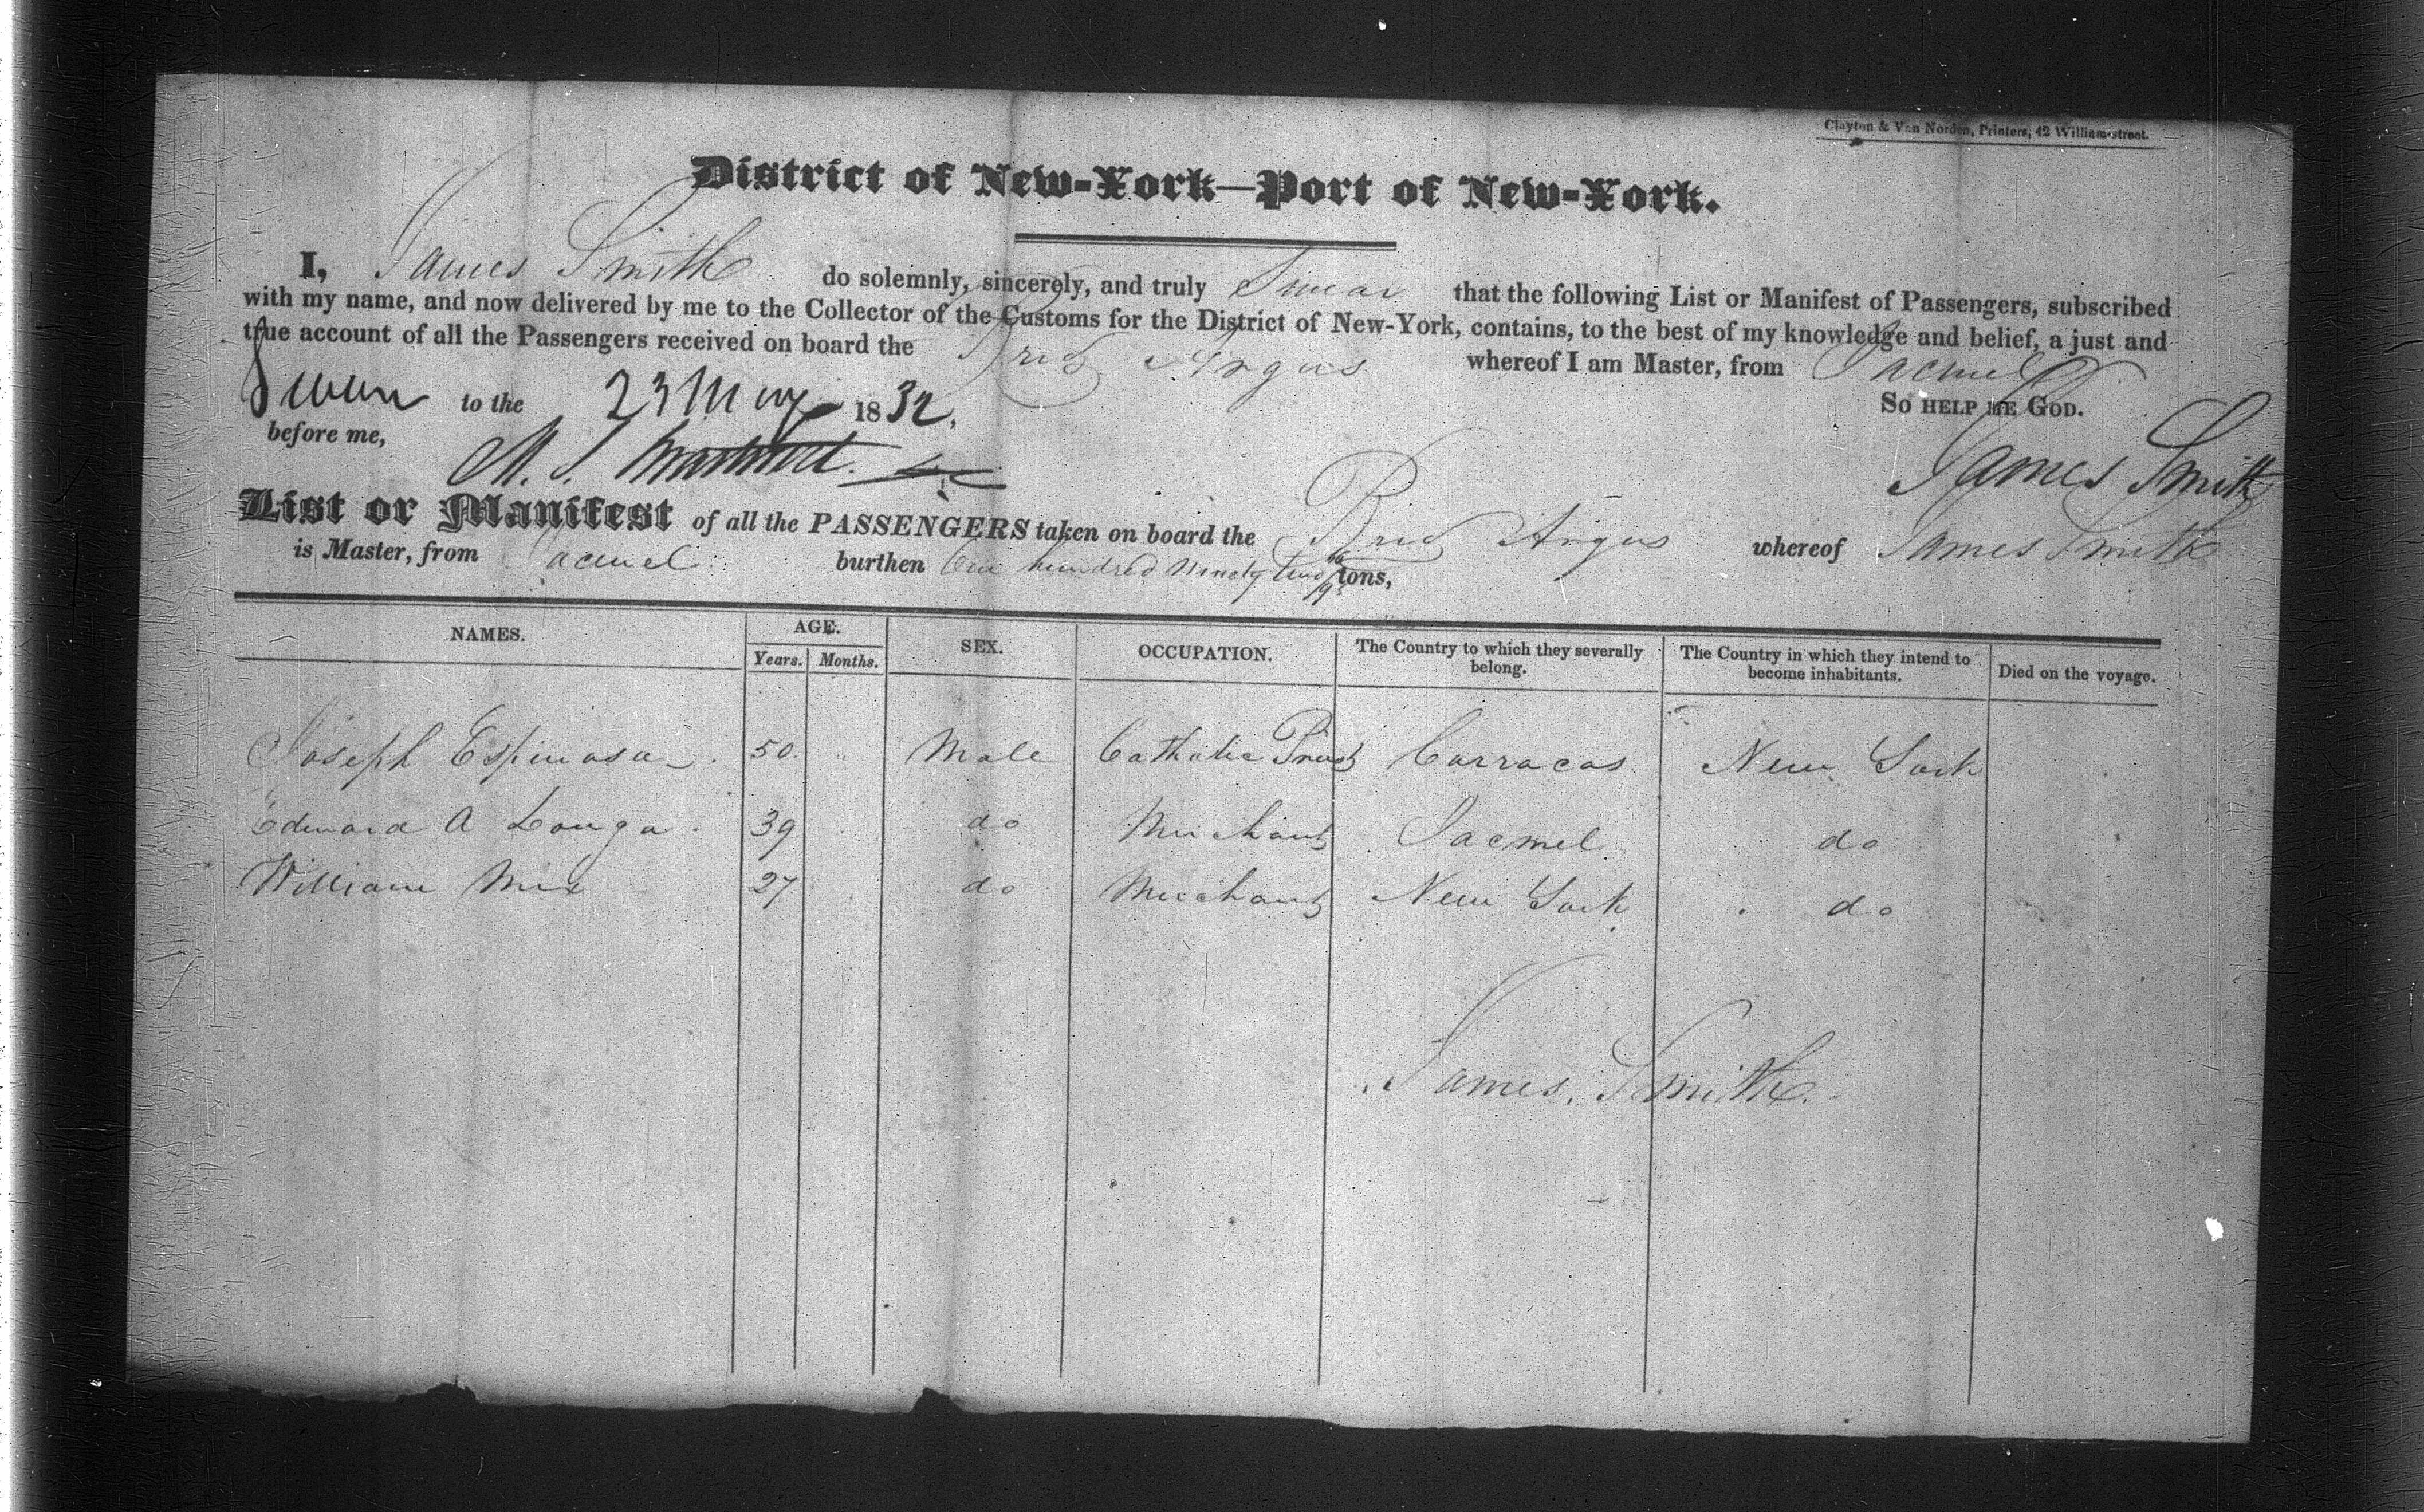 Clayton & Van Norden, Printers, 42 William-street.
District of New-York—Port of New-York.
I, James Smith do solemnly, sincerely, and truly Swear that the following List or Manifest of Passengers, subscribed
with my name, and now delivered by me to the Collector of the Customs for the District of New-York, contains, to the best of my knowledge and belief, a just and
true account of all the Passengers received on board the Brig Argus whereof I am Master, from Jacmel
Sworn to the 23 May 1832. So help me God.
before me, M. S. James Smith
List or Manifest of all the PASSENGERS taken on board the Brig Argus whereof James Smith
is Master, from Jacmel burthen One hundred Ninety two tons,
NAMES. AGE. SEX. OCCUPATION. The Country to which they severally belong. The Country in which they intend to become inhabitants. Died on the voyage.
Years. Months.
Joseph Espinosa. 50. " Male Catholic Priest Carracas New York
Edward A Longa. 39 do Merchant Jacmel do
William Mix 27 do Merchant New York do
James Smith.